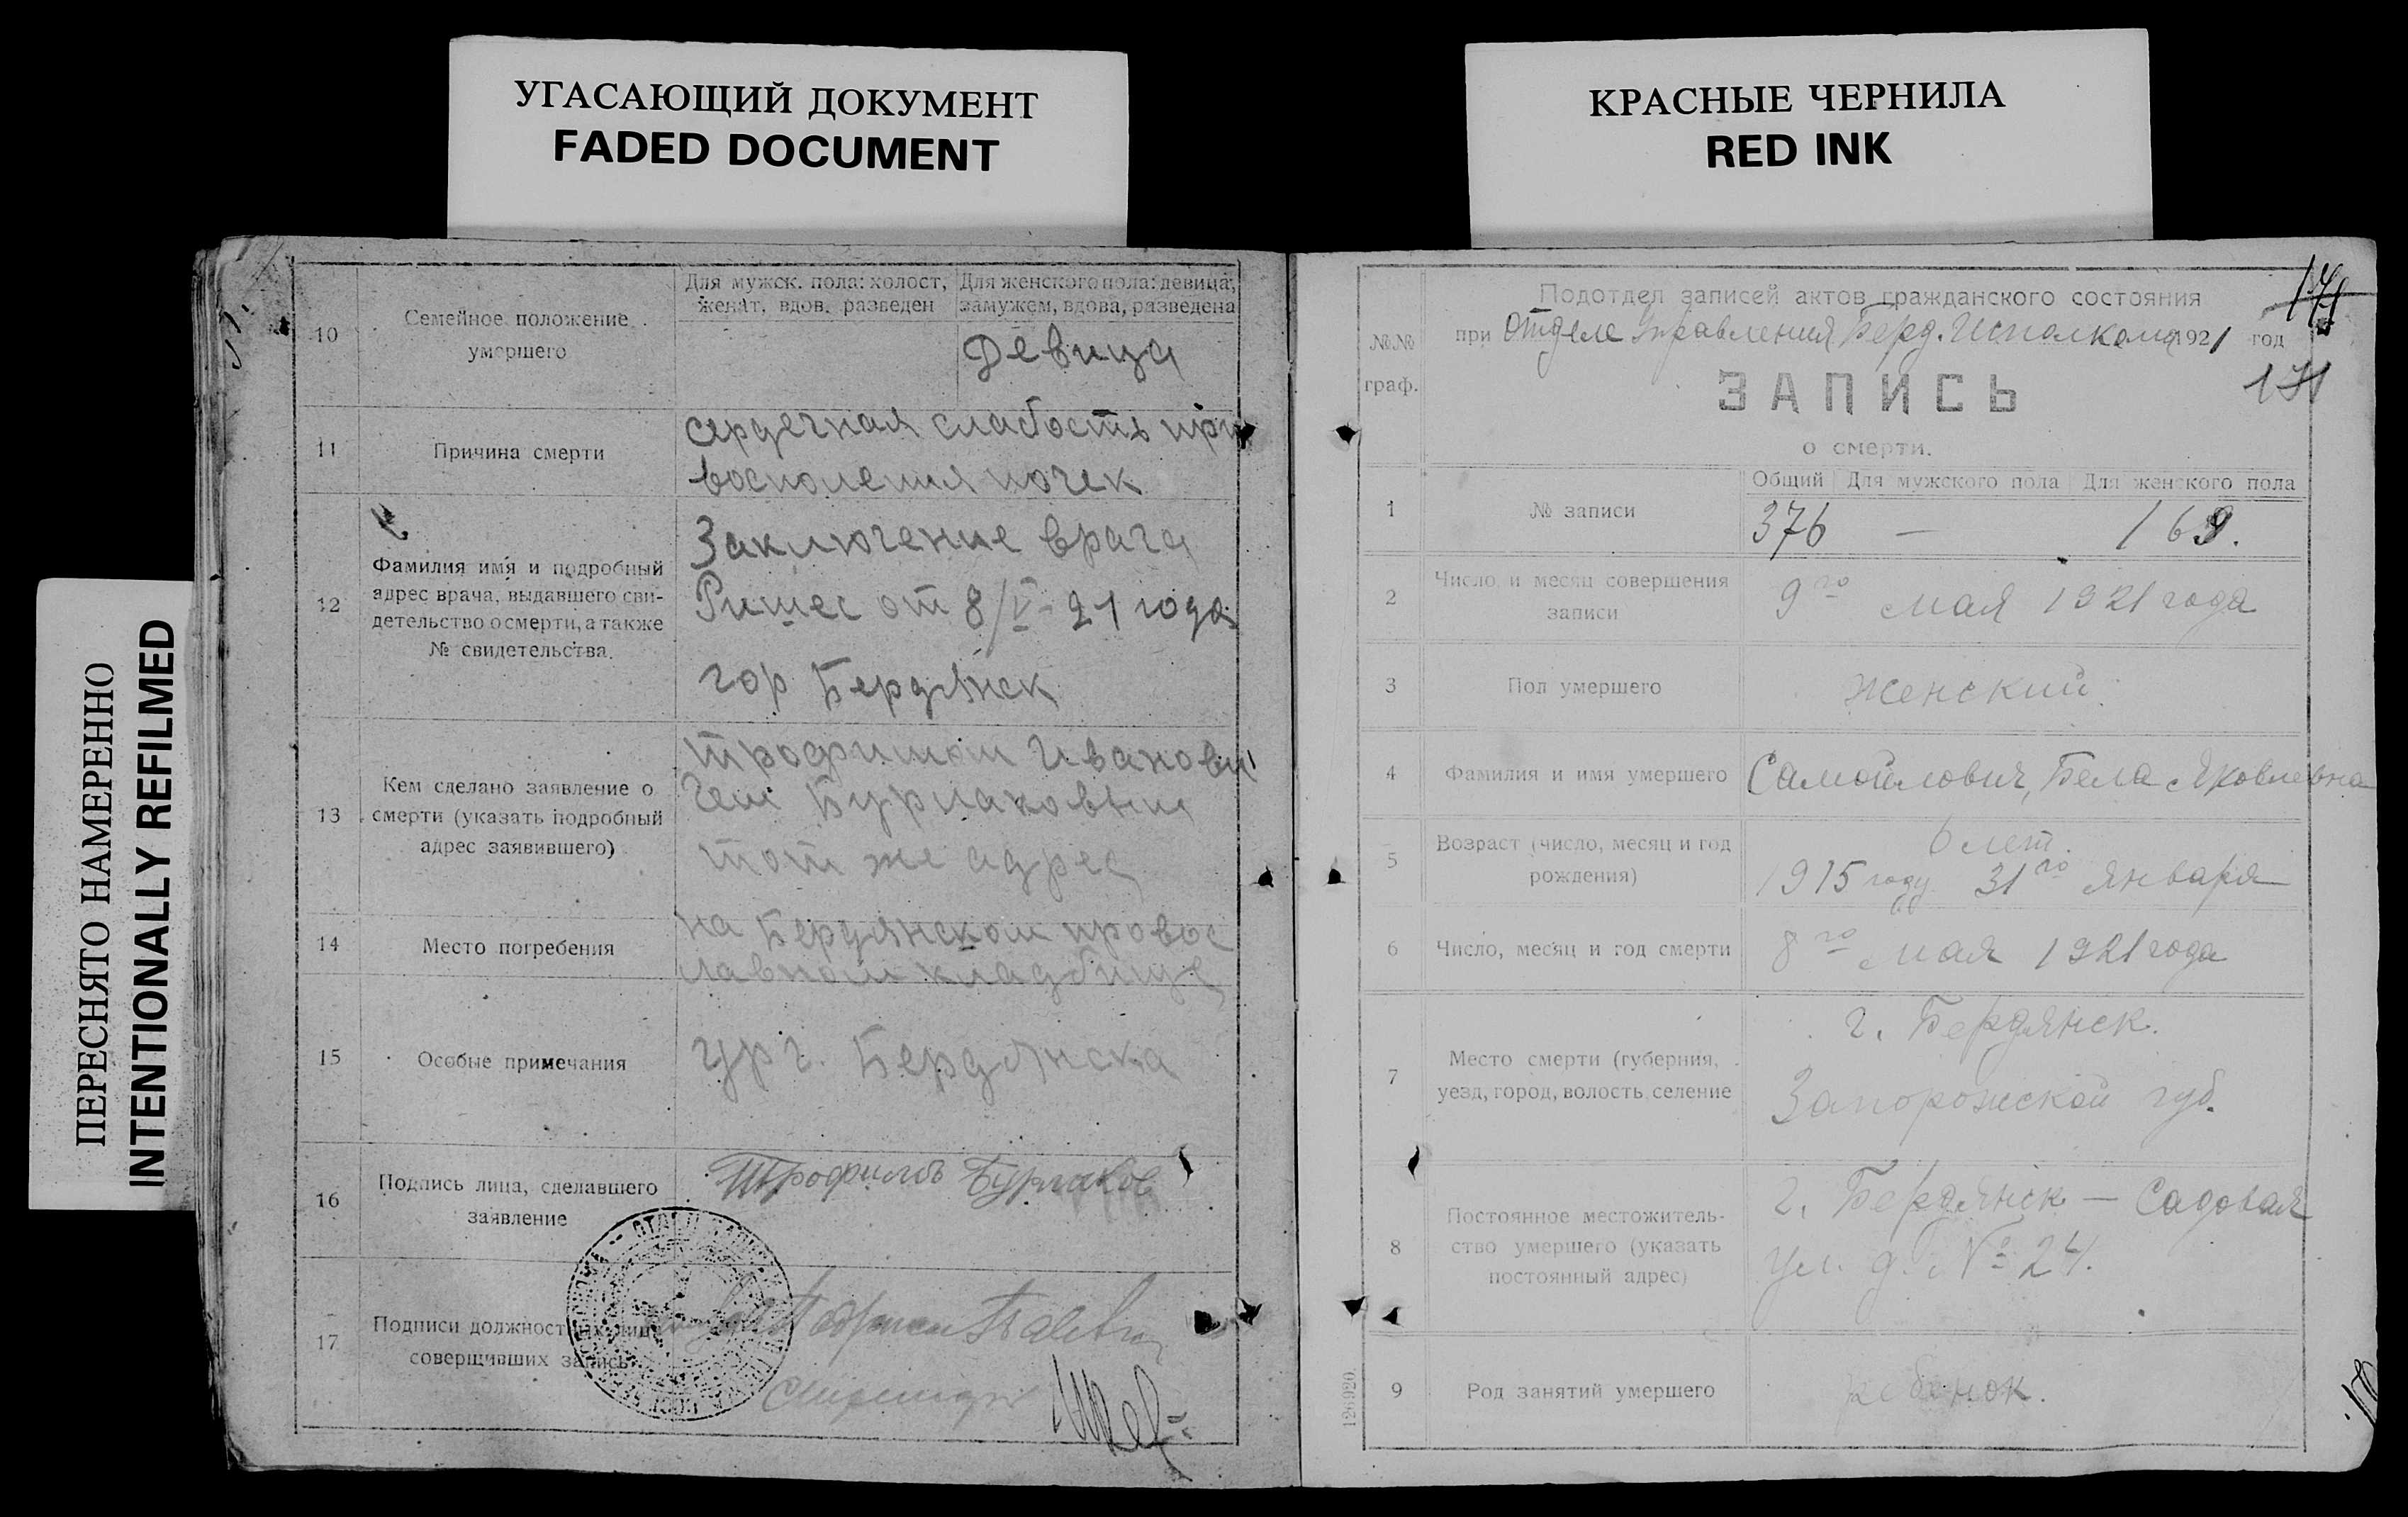 УГАСАЮЩИЙ ДОКУМЕНТ
FADED DOCUMENT
КРАСНЫЕ ЧЕРНИЛА
RED INK
ПЕРЕСНЯТО НАМЕРЕННО
INTENTIONALLY REFILMED
10
Семейное положение
умершего
Для мужск. пола: холост,
женат, вдов, разведен
Для женского пола: девица,
замужем, вдова, разведена
Девица
11
Причина смерти
сердечная слабость при
восполения почек
12
Фамилия имя и подробный
адрес врача, выдавшего сви-
детельство о смерти, а также
№ свидетельства.
Заключение врача
от 8/V-21 года
гор Бердянск
13
Кем сделано заявление о
смерти (указать подробный
адрес заявившего)
Трофимом Иванови
чем Бурлаковым
тот же адрес
14
Место погребения
на Бердянском провос
лавном кладбище
15
Особые примечания
гр г. Бердянска
16
Подпись лица, сделавшего
заявление
Трофимъ Бурлаков
17
Подписи должностных лиц
совершивших запись
171
Подотдел записей актов гражданского состояния
при Отделе Управления Берд. Исполкома 1921 год
171
№№
граф.
ЗАПИСЬ
о смерти.
1
№ записи
Общий Для мужского пола Для женского пола
376 — 169.
2
Число и месяц совершения
записи
9го мая 1921 года
3
Пол умершего
Женский.
4
Фамилия и имя умершего
Самойлович, Бела Яковлевна
5
Возраст (число, месяц и год
рождения)
6 лет.
1915 году 31го января
6
Число, месяц и год смерти
8го мая 1921 года
7
Место смерти (губерния,
уезд, город, волость, селение
г. Бердянск.
Запорожской губ.
8
Постоянное местожитель-
ство умершего (указать
постоянный адрес)
г. Бердянск — Садовая
ул. д. № 24.
9
Род занятий умершего
ребенок.
126920.